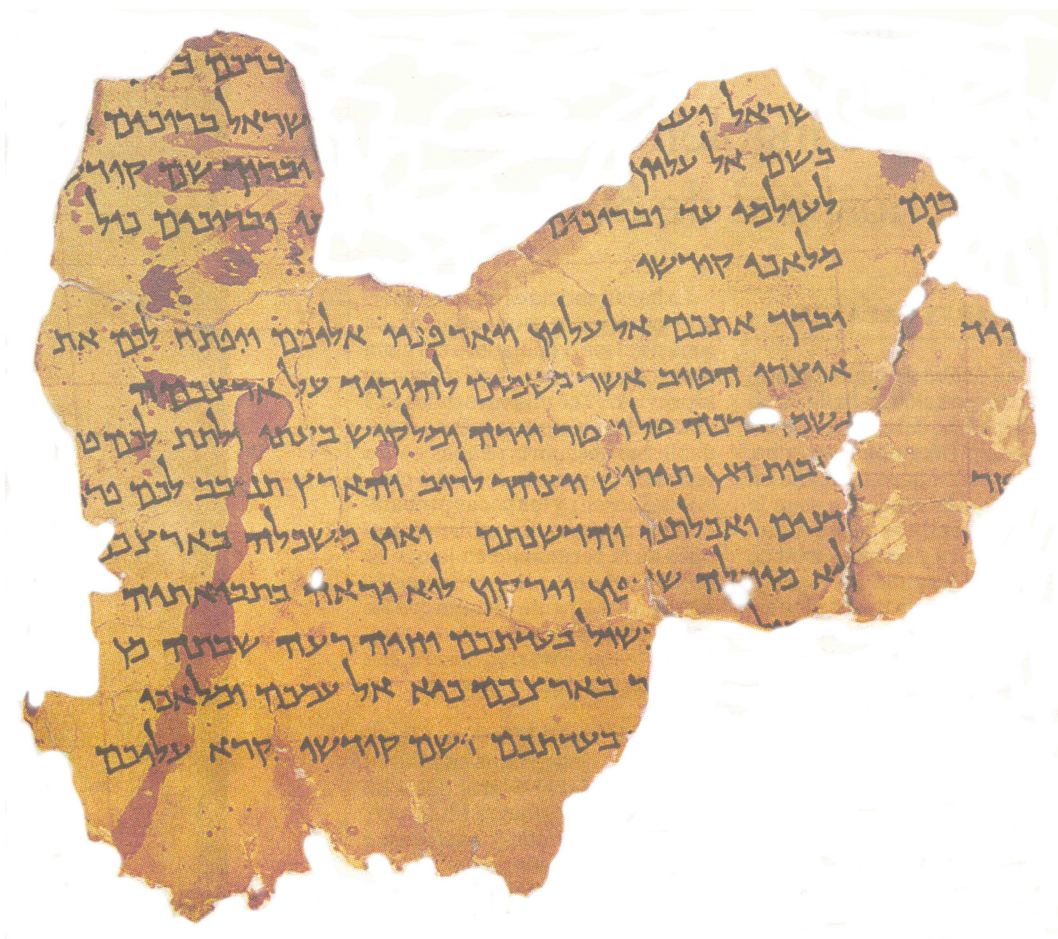 וברכם ב
שראל וענ שראל ברוכים
בשם אל עליון וברוך שם קודש
לעולמי עד וברוכים וברוכים כול
מלאכי קודשו
יברך אתכם אל עליון ויאר פניו אליכם ויפתח לכם את
אוצרו הטוב אשר בשמים להוריד על ארצכמה
גשמי ברכה טל ומטר יורה ומלקוש בעתו ולתת לכם
דגן תירוש ויצהר לרוב והארץ תנובב לכם פרי
דנים ואכלתם והדשנתם ואין משכלה בארצכם
לוא מוחלה שדפון וירקון לוא יראה בתבואתיה
שול בעדתכם וחיה רעה שבתה מן
ר בארצכם כיא אל עמכם ומלאכי
בעדתכם ושם קודשו נקרא עליכם